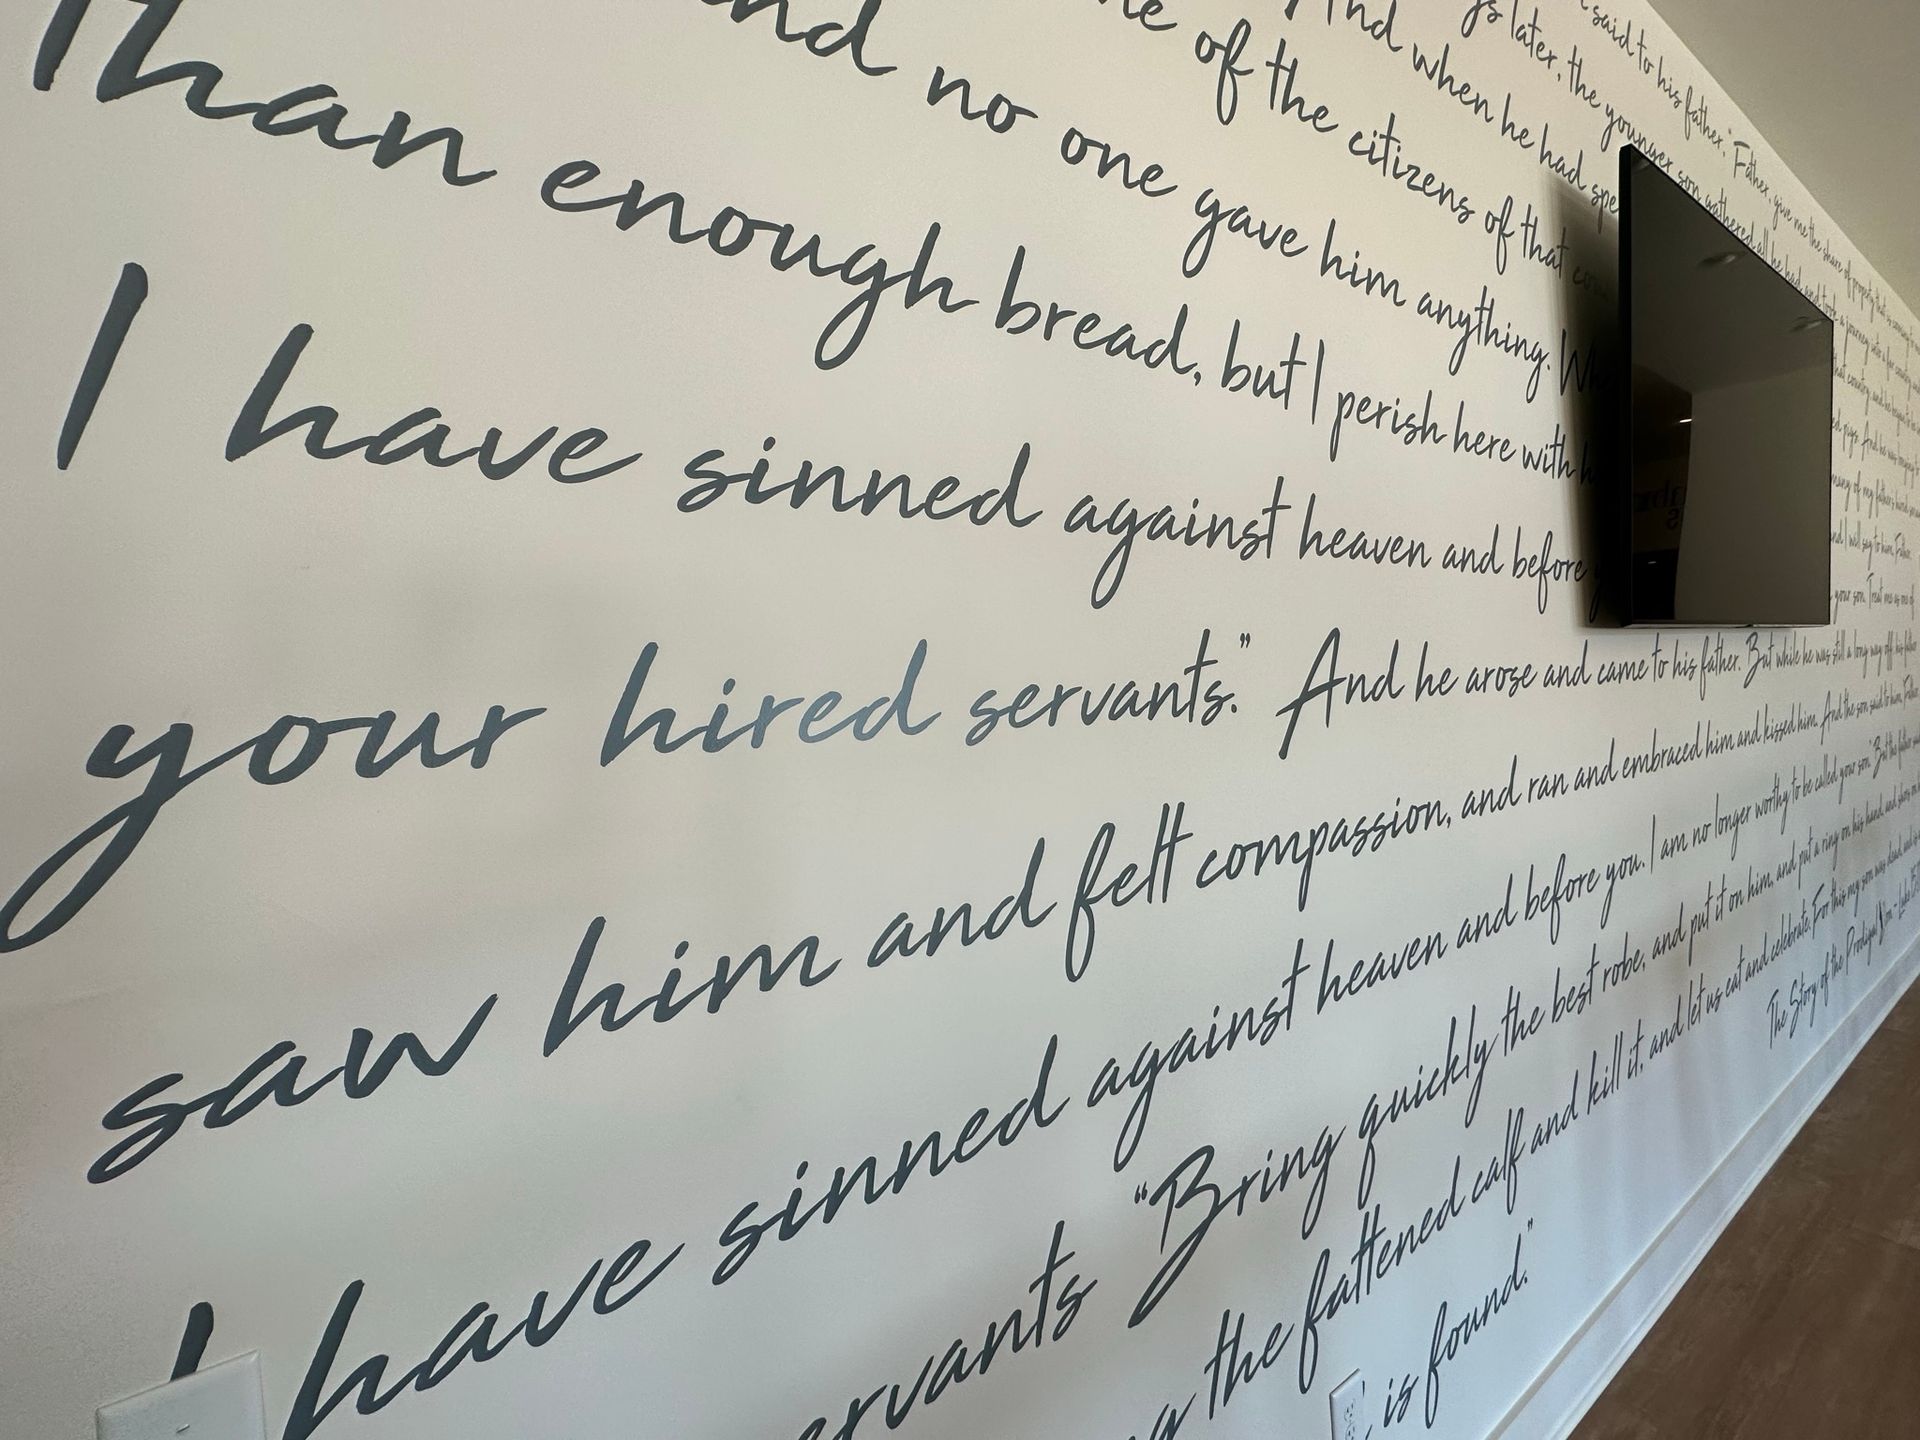 said to his father, "Father, give me the share of property that is coming to
gs later, the younger son gathered all he had and took a journey into a far country, and
And when he had spe that country, and he began to be in
of the citizens of that ed pigs. And he was longing to
and no one gave him anything. many of my father's hired servants
than enough bread, but I perish here with h and I will say to him, Father,
I have sinned against heaven and before your son. Treat me as one of
your hired servants." And he arose and came to his father. But while he was still a long way off, his father
saw him and felt compassion, and ran and embraced him and kissed him. And the son said to him, Father
I have sinned against heaven and before you. I am no longer worthy to be called your son." But the father said
servants "Bring quickly the best robe, and put it on him, and put a ring on his hand, and shoes on
the fattened calf and kill it, and let us eat and celebrate. For this my son was dead, and is
is found."
The Story of the Prodigal Son - Luke 15